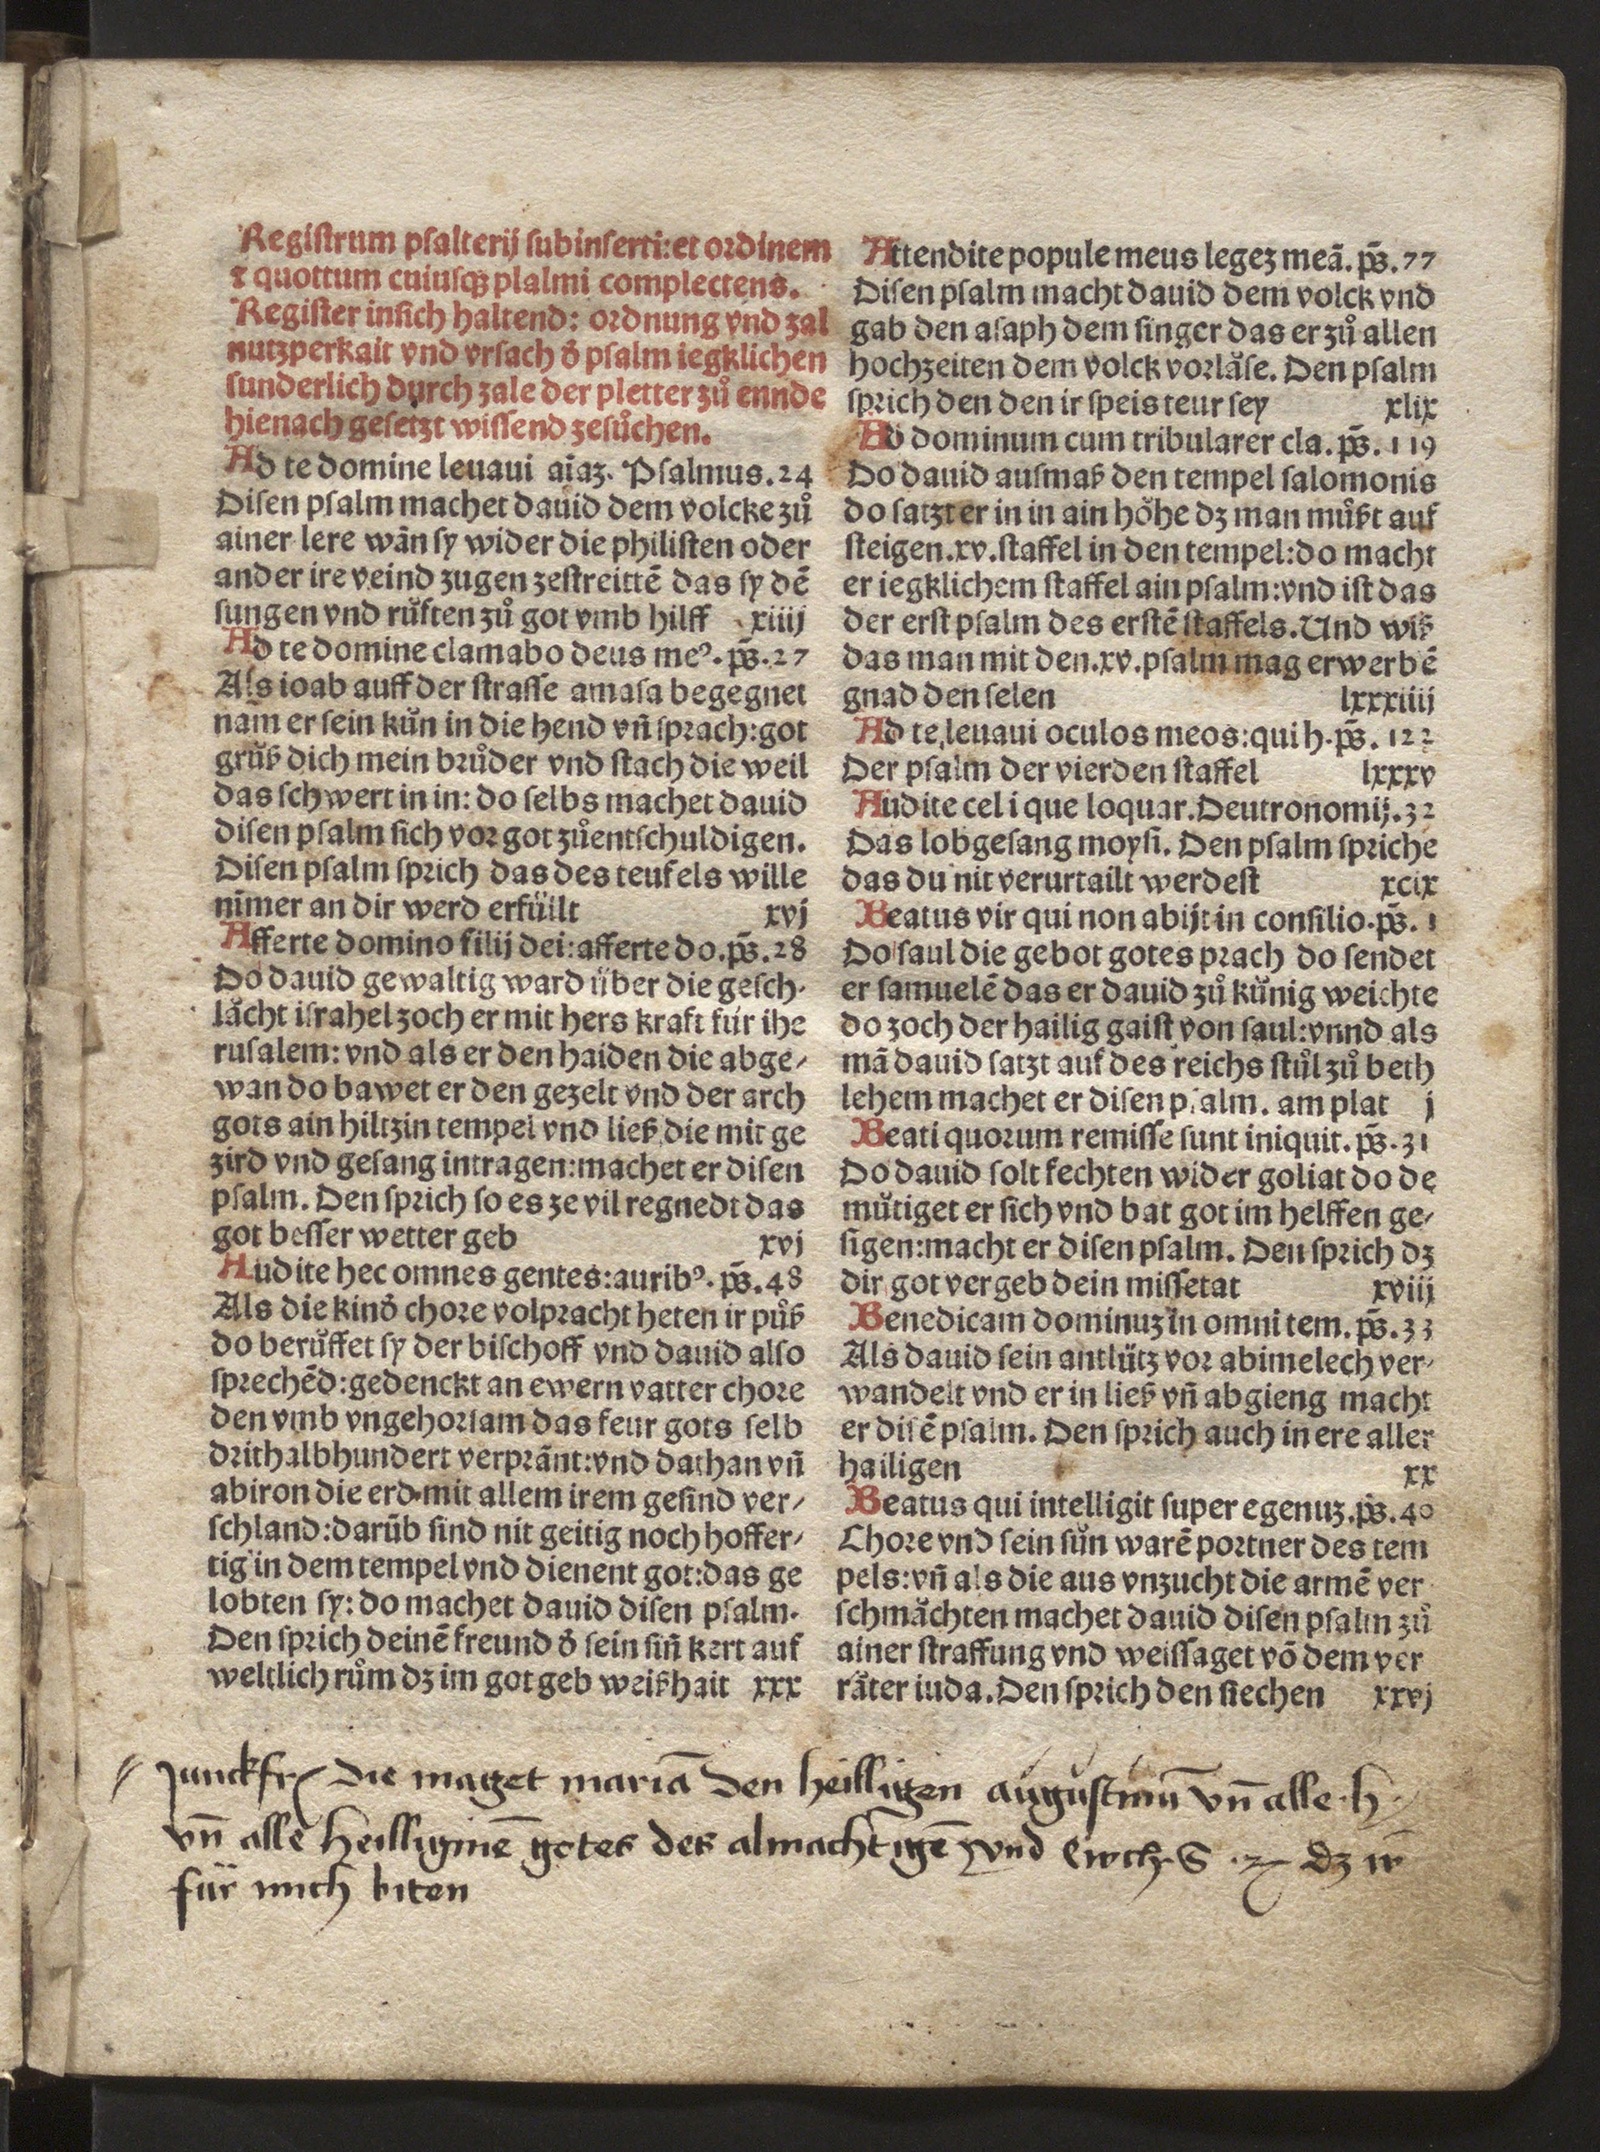 Registrum psalterij subinserti: et ordinem
⁊ quottum cuiusqꝫ plalmi complectens.
Register insich haltend: ordnung vnd zal
nutzperkait vnd vrsach ð psalm iegklichen
sunderlich durch zale der pletter zů ennde
hienach gesetzt wissend zesůchen.
Ad te domine leuaui aĩaz. Psalmus. 24
Disen psalm machet dauid dem volcke zů
ainer lere wãn sy wider die philisten oder
ander ire veind zugen zestreittẽ das sy dẽ
sungen vnd růften zů got vmb hilff xiiij
Ad te domine clamabo deus meꝰ. p̃s. 27
Als ioab auff der strasse amasa begegnet
nam er sein kün in die hend vñ sprach: got
grůß dich mein brůder vnd stach die weil
das schwert in in: do selbs machet dauid
disen psalm sich vor got zůentschuldigen.
Disen psalm sprich das des teufels wille
nĩmer an dir werd erfüllt xvj
Afferte domino filij dei: afferte do. p̃s. 28
Do dauid gewaltig ward über die gesch-
lächt israhel zoch er mit hers kraft für ihe
rusalem: vnd als er den haiden die abge/
wan do bawet er den gezelt vnd der arch
gots ain hiltzin tempel vnd ließ die mit ge
zird vnd gesang intragen: machet er disen
psalm. Den sprich so es ze vil regnedt das
got besser wetter geb xvj
Audite hec omnes gentes: auribꝰ. p̃s. 48
Als die kinð chore volpracht heten ir půß
do berůffet sy der bischoff vnd dauid also
sprechẽd: gedenckt an ewern vatter chore
den vmb vngehorsam das feur gots selb
drithalbhundert verprãnt: vnd dathan vñ
abiron die erd mit allem irem gesind ver/
schland: darũb sind nit geitig noch hoffer/
tig in dem tempel vnd dienent got: das ge
lobten sy: do machet dauid disen psalm.
Den sprich deinẽ freund ð sein siñ kert auf
weltlich rům dz im got geb weißhait xxx
Attendite popule meus legez meã. p̃s. 77
Disen psalm macht dauid dem volck vnd
gab den asaph dem singer das er zů allen
hochzeiten dem volck vorläse. Den psalm
sprich den den ir speis teur sey xlix
Ad dominum cum tribularer cla. p̃s. 119
Do dauid ausmaß den tempel salomonis
do satzt er in in ain höhe dz man můßt auf
steigen. xv. staffel in den tempel: do macht
er iegklichem staffel ain psalm: vnd ist das
der erst psalm des erstẽ staffels. Und wiß
das man mit den. xv. psalm mag erwerbẽ
gnad den selen lxxxiiij
Ad te leuaui oculos meos: qui h. p̃s. 122
Der psalm der vierden staffel lxxxv
Audite celi que loquar. Deutronomij. 32
Das lobgesang moysi. Den psalm spriche
das du nit verurtailt werdest xcix
Beatus vir qui non abijt in consilio. p̃s. 1
Do saul die gebot gotes prach do sendet
er samuelẽ das er dauid zů künig weichte
do zoch der hailig gaist von saul: vnnd als
mã dauid satzt auf des reichs stůl zů beth
lehem machet er disen psalm. am plat j
Beati quorum remisse sunt iniquit. p̃s. 31
Do dauid solt fechten wider goliat do de
mütiget er sich vnd bat got im helffen ge/
sigen: macht er disen psalm. Den sprich dz
dir got vergeb dein missetat xviij
Benedicam dominuz in omni tem. p̃s. 33
Als dauid sein antlütz vor abimelech ver/
wandelt vnd er in ließ vñ abgieng macht
er disẽ psalm. Den sprich auch in ere aller
hailigen xx
Beatus qui intelligit super egenuz. p̃s. 40
Chore vnd sein sün warẽ portner des tem
pels: vñ als die aus vnzucht die armẽ ver
schmächten machet dauid disen psalm zů
ainer straffung vnd weissaget võ dem ver
räter iuda. Den sprich den siechen xxvj
Junckfr die maget mariã den heilligen augustinũ vñ alle h
vñ alle heilliginẽ gotes des almachtigẽ vnd dz ir
für mich biten